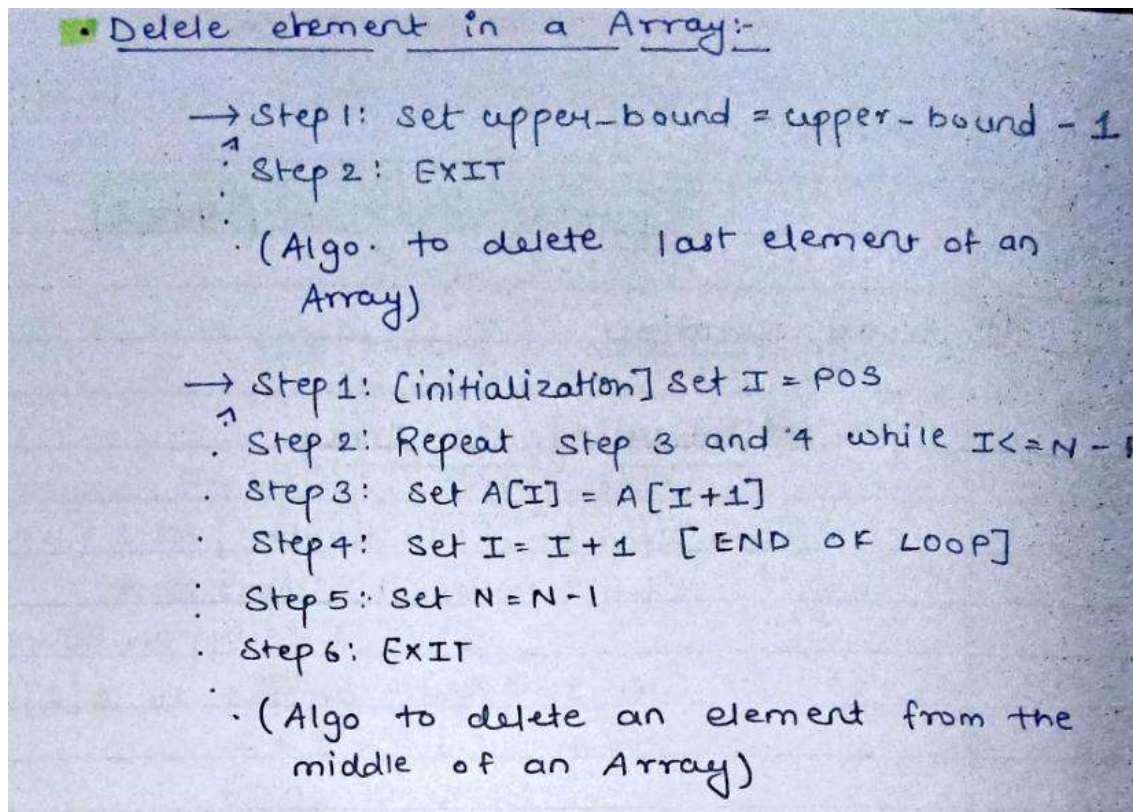 • Delele element in a Array:-
→ Step 1: set upper-bound = upper-bound - 1
Step 2: EXIT
(Algo. to delete last element of an
Array)
→ Step 1: [initialization] Set I = POS
Step 2: Repeat step 3 and 4 while I<=N-1
Step 3: Set A[I] = A[I+1]
Step 4: Set I = I + 1 [END OF LOOP]
Step 5: Set N = N-1
Step 6: EXIT
(Algo to delete an element from the
middle of an Array)